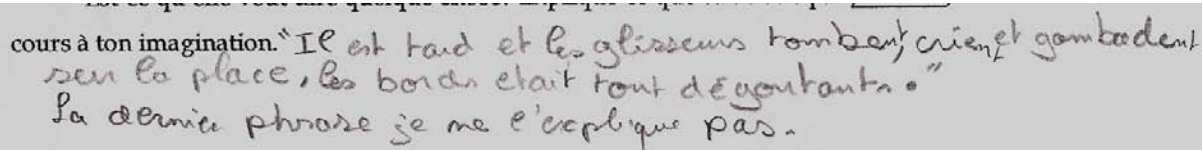 cours à ton imagination. "Il est tard et les glisseurs tombent, crient et gambadent
sur la place, les bords etait tout dégoutants."
La dernier phrase je me l'explique pas.